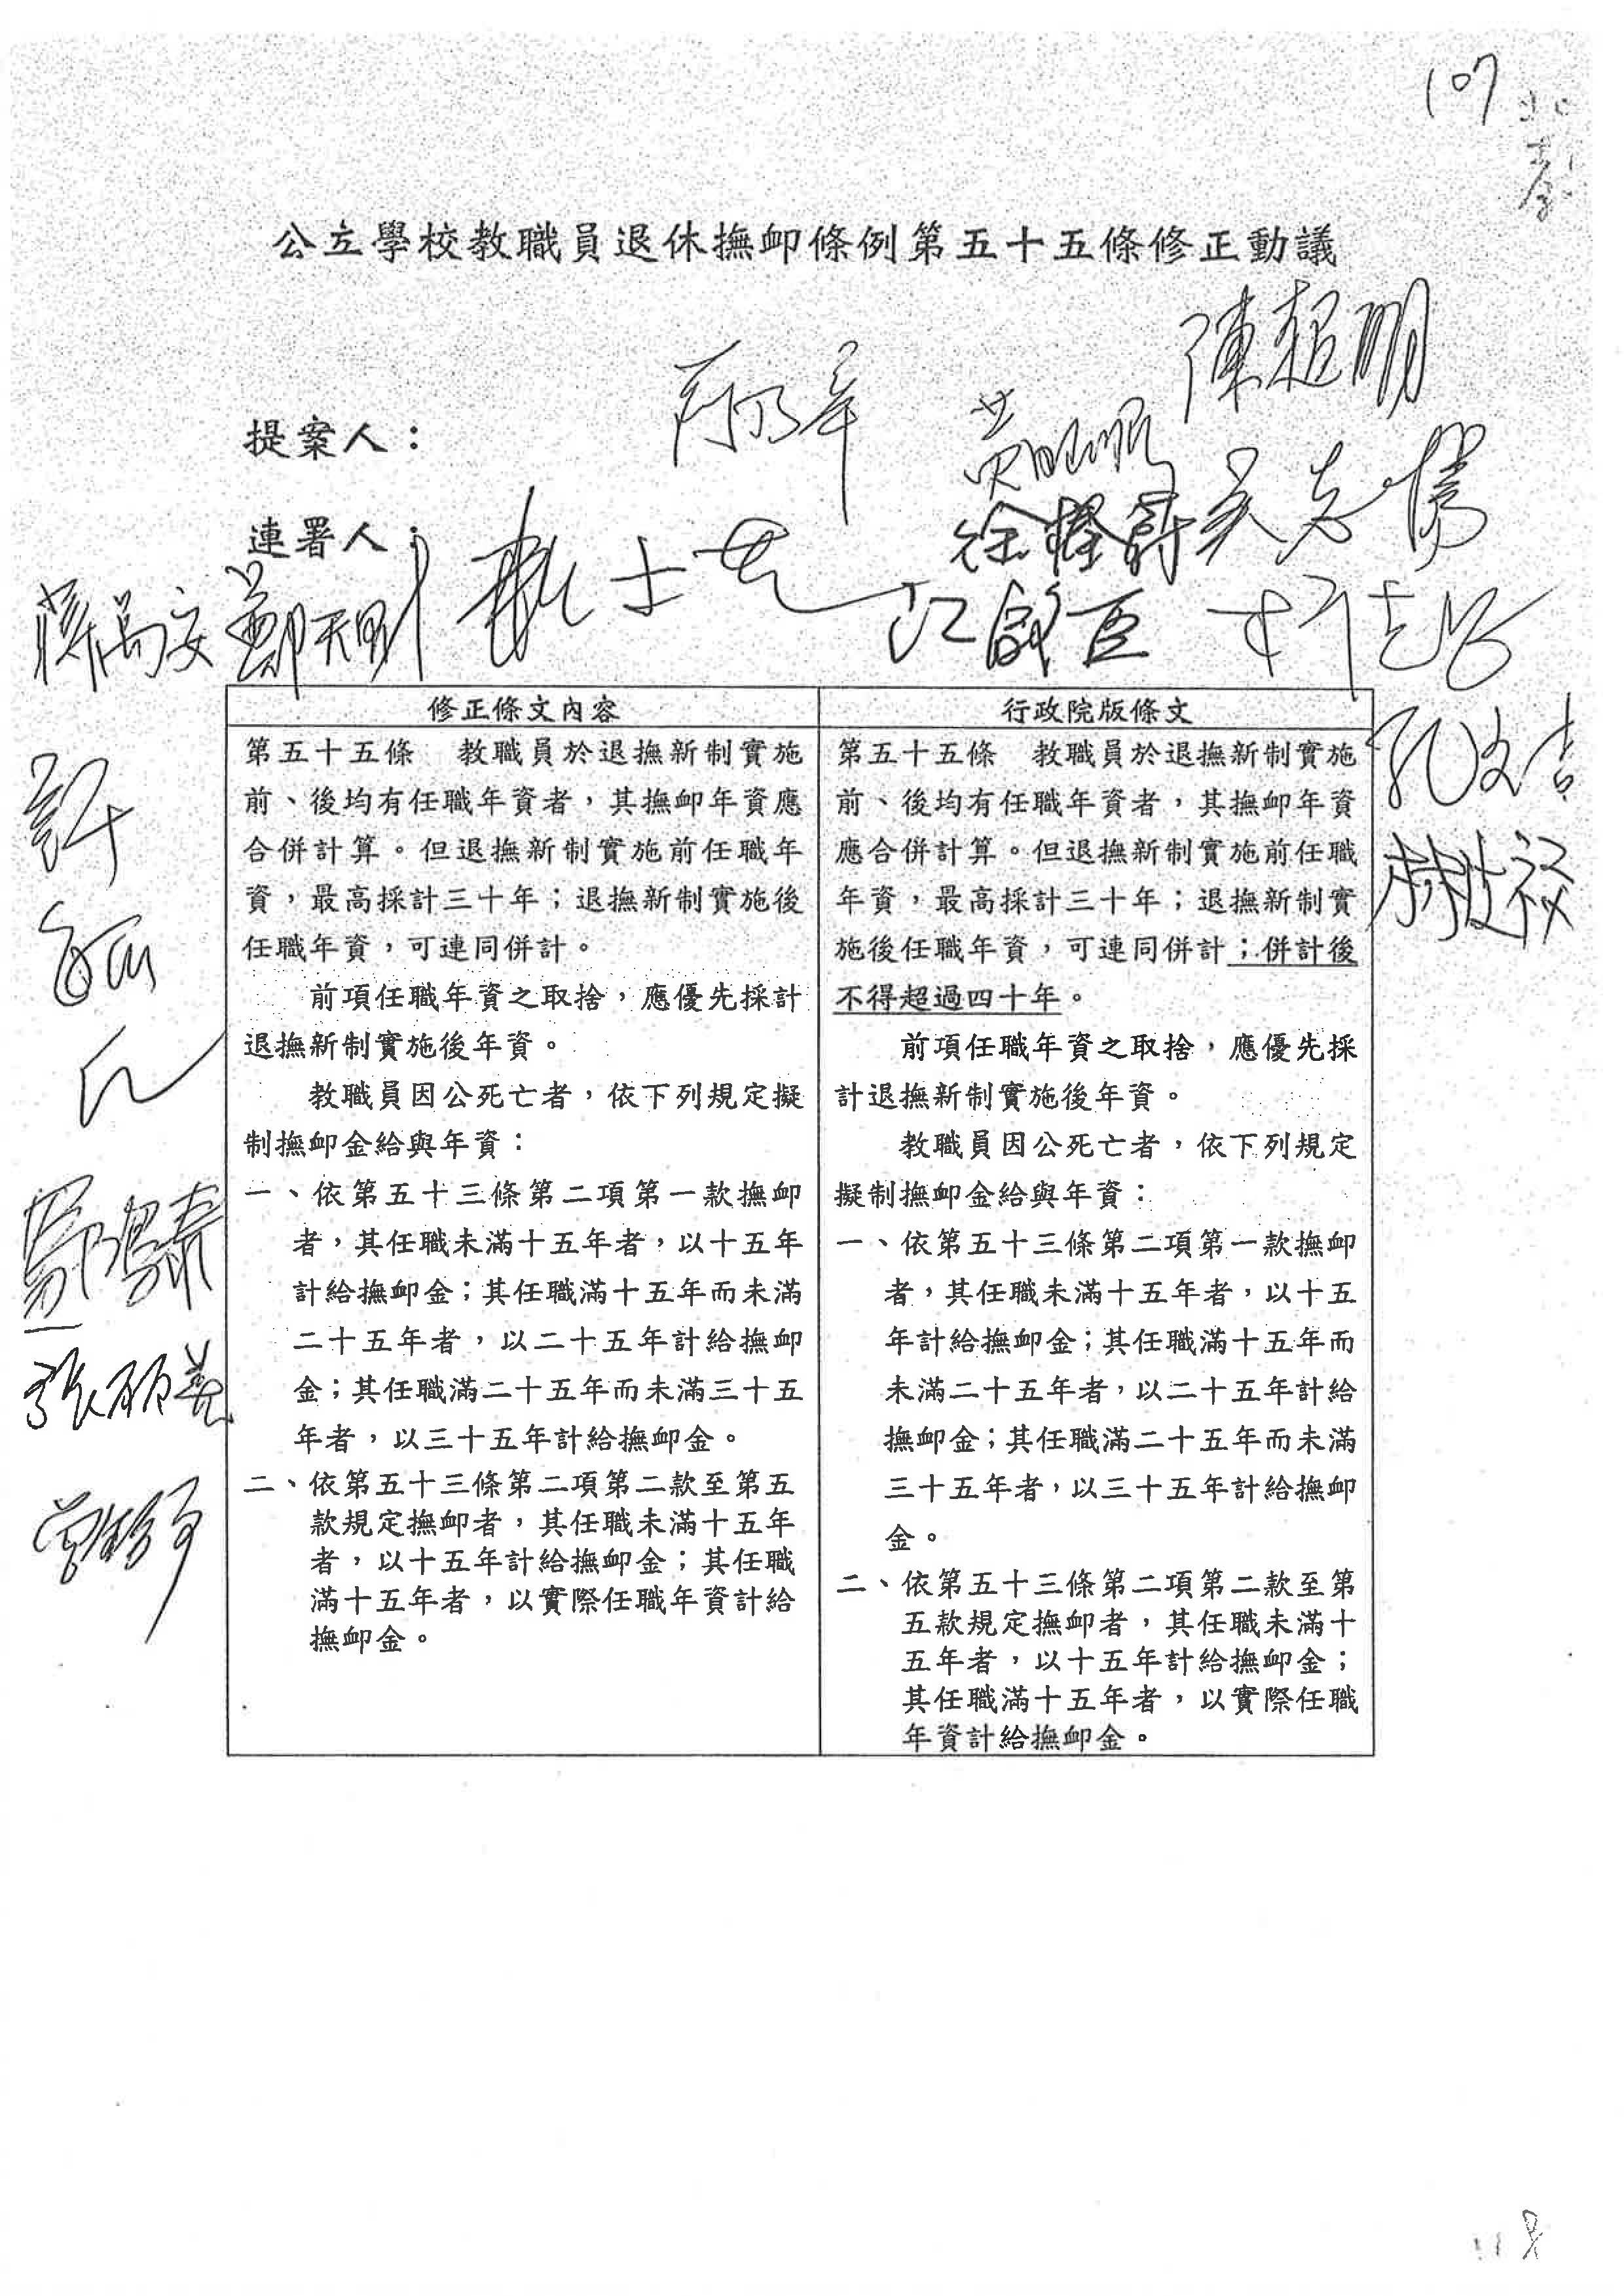 107
公立學校教職員退休撫卹條例第五十五條修正動議
陳超明
提案人：
黃昭順
吳志揚
連署人：
徐榛蔚
蔣萬安
鄭天財
江啟臣
柯志恩
孔文吉
林德福
許
鄭
張麗善
曾銘宗
修正條文內容
第五十五條　教職員於退撫新制實施
前、後均有任職年資者，其撫卹年資應
合併計算。但退撫新制實施前任職年
資，最高採計三十年；退撫新制實施後
任職年資，可連同併計。
前項任職年資之取捨，應優先採計
退撫新制實施後年資。
教職員因公死亡者，依下列規定擬
制撫卹金給與年資：
一、依第五十三條第二項第一款撫卹
者，其任職未滿十五年者，以十五年
計給撫卹金；其任職滿十五年而未滿
二十五年者，以二十五年計給撫卹
金；其任職滿二十五年而未滿三十五
年者，以三十五年計給撫卹金。
二、依第五十三條第二項第二款至第五
款規定撫卹者，其任職未滿十五年
者，以十五年計給撫卹金；其任職
滿十五年者，以實際任職年資計給
撫卹金。
行政院版條文
第五十五條　教職員於退撫新制實施
前、後均有任職年資者，其撫卹年資
應合併計算。但退撫新制實施前任職
年資，最高採計三十年；退撫新制實
施後任職年資，可連同併計；併計後
不得超過四十年。
前項任職年資之取捨，應優先採
計退撫新制實施後年資。
教職員因公死亡者，依下列規定
擬制撫卹金給與年資：
一、依第五十三條第二項第一款撫卹
者，其任職未滿十五年者，以十五
年計給撫卹金；其任職滿十五年而
未滿二十五年者，以二十五年計給
撫卹金；其任職滿二十五年而未滿
三十五年者，以三十五年計給撫卹
金。
二、依第五十三條第二項第二款至第
五款規定撫卹者，其任職未滿十
五年者，以十五年計給撫卹金；
其任職滿十五年者，以實際任職
年資計給撫卹金。